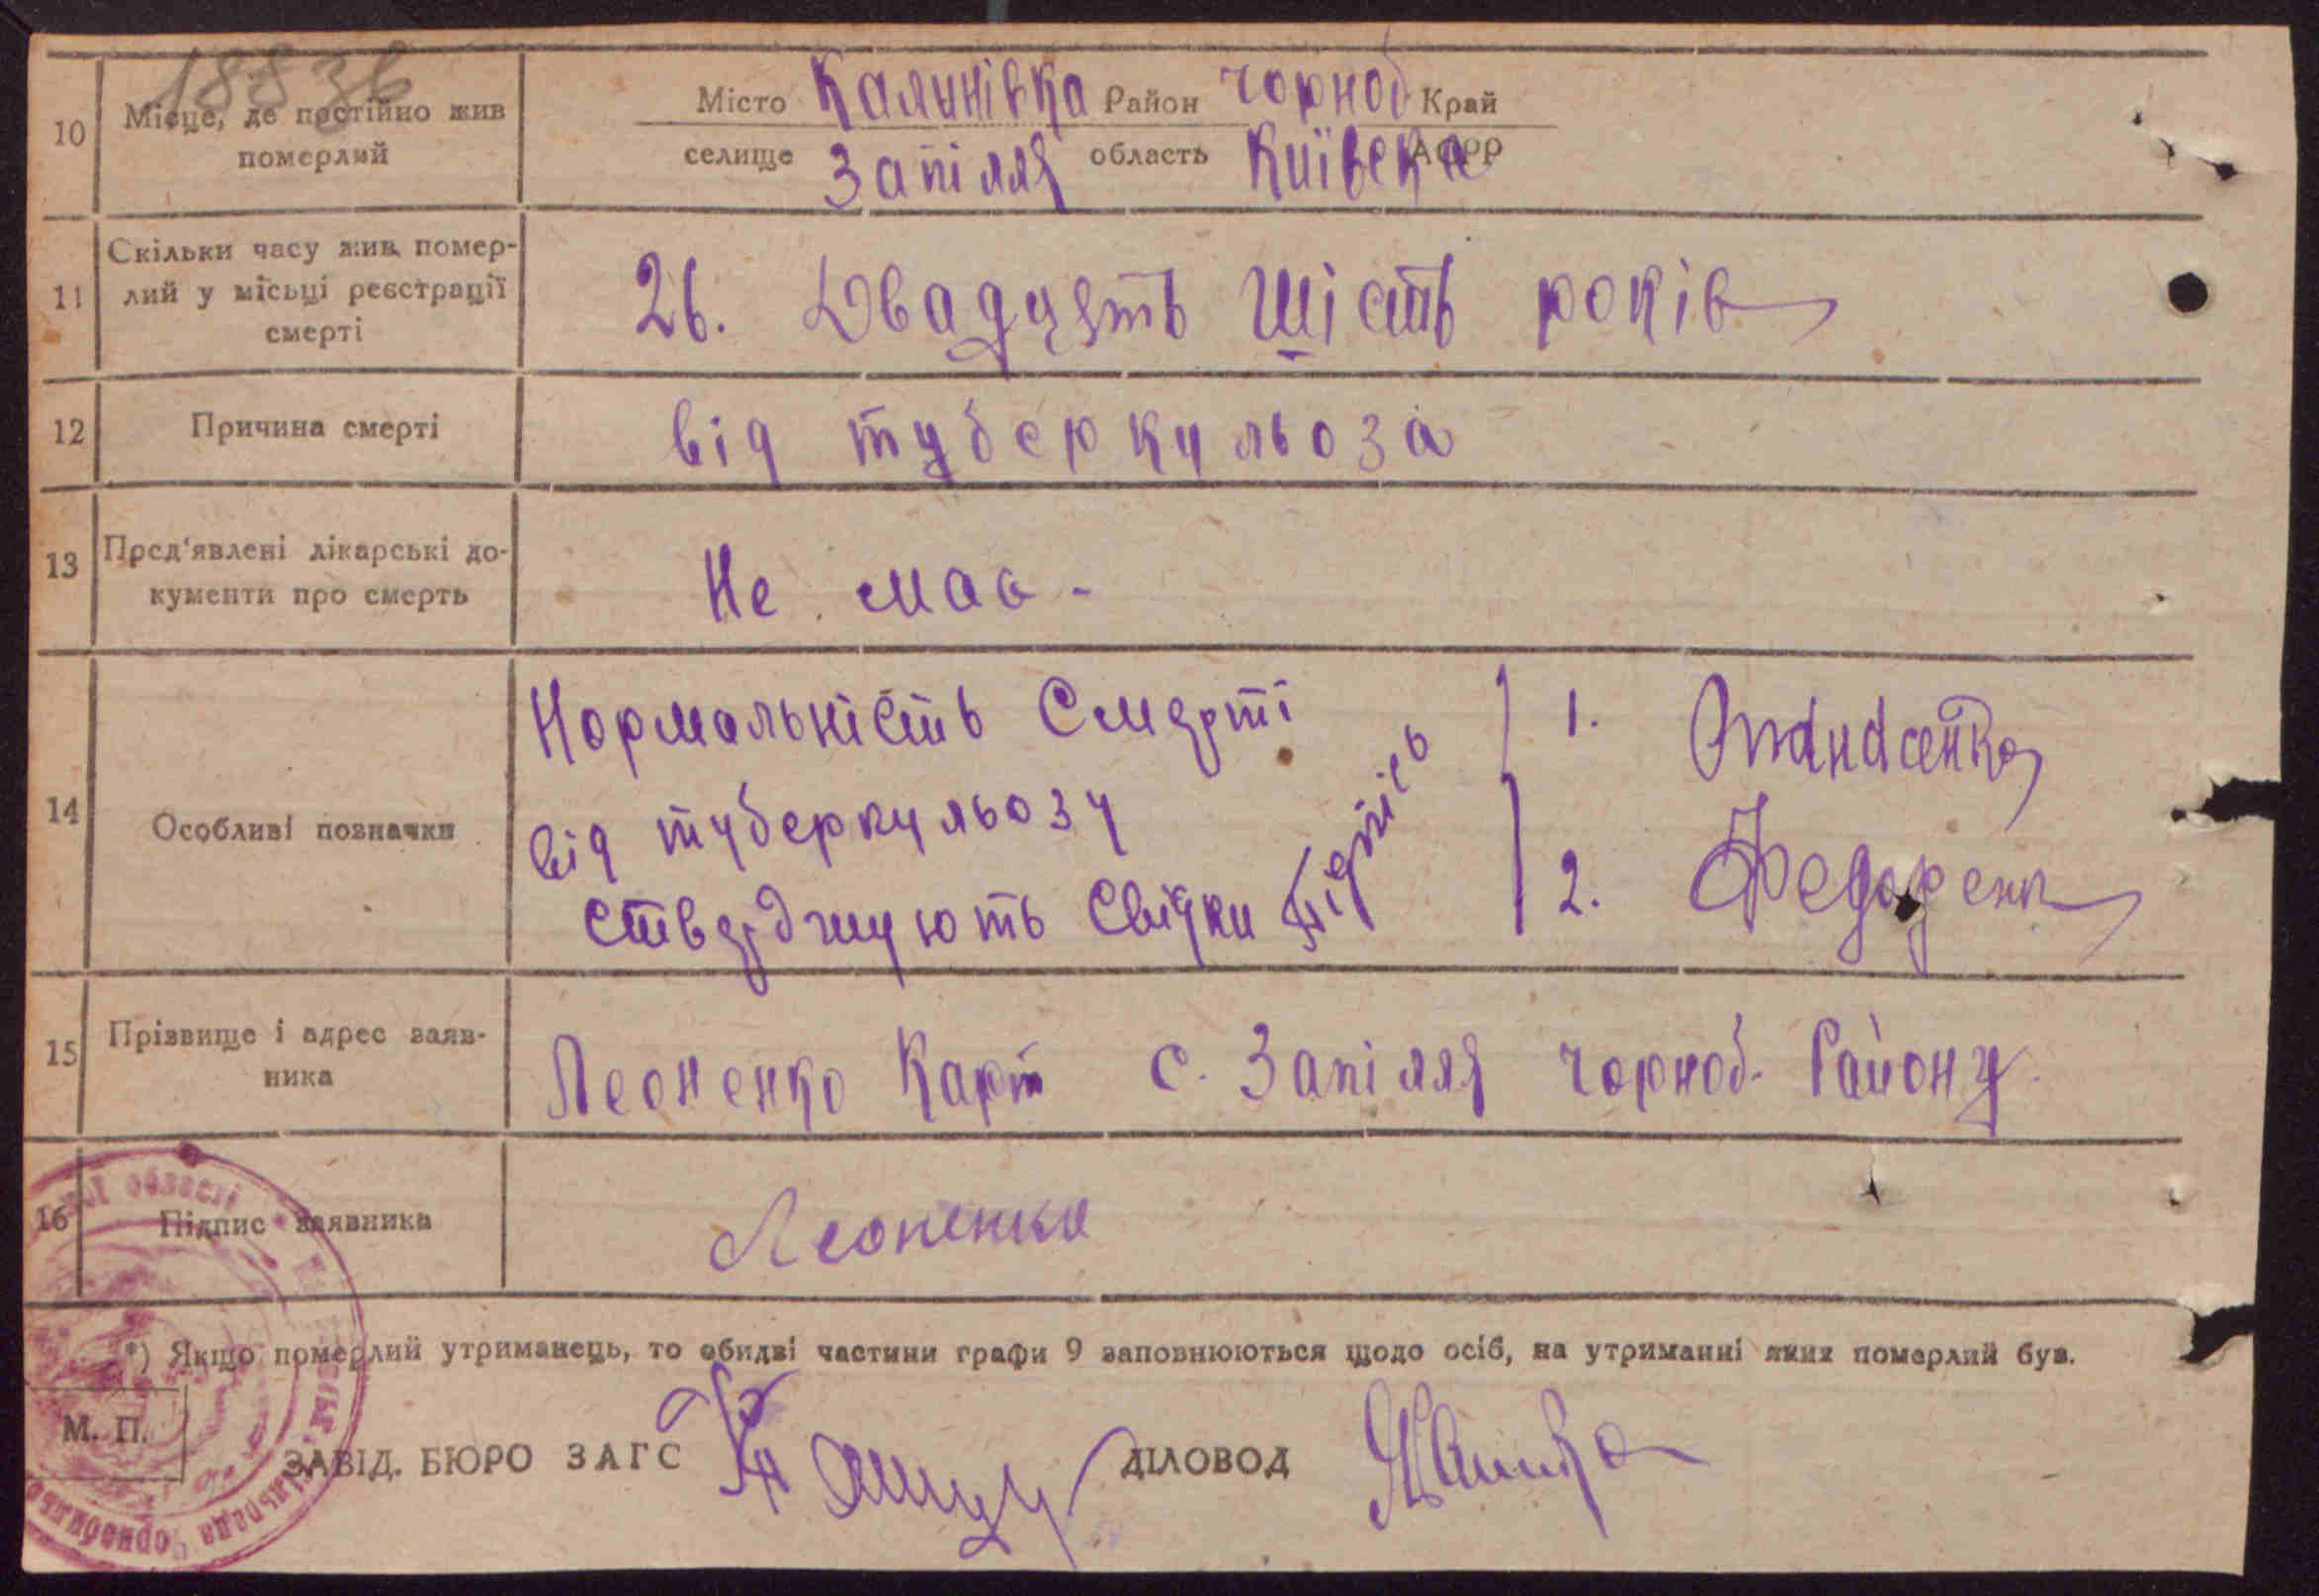 18836
10 Місце, де постійно жив померлий
Місто Калинівка Район Чорноб Край
селище Запілля область Київска АСРР
11 Скільки часу жив помер-
лий у місьці реєстрації
смерті
26. Двадцять шість років
12 Причина смерті
від туберкульоза
13 Пред'явлені лікарські до-
кументи про смерть
Не має -
14 Особливі позначки
Нормальність Смерті
від туберкульозу
стверджують свідки підпісь
1. Опанасенко
2. Федоренк
15 Прізвище і адрес заяв-
ника
Леоненко Карт с. Запілля Чорноб. Району.
16 Підпис заявника
Леоненко
*) Якщо померлий утриманець, то обидві частини графи 9 заповнюються щодо осіб, на утриманні яких померлий був.
М. П.
ЗАВІД. БЮРО ЗАГС
ДІЛОВОД
області